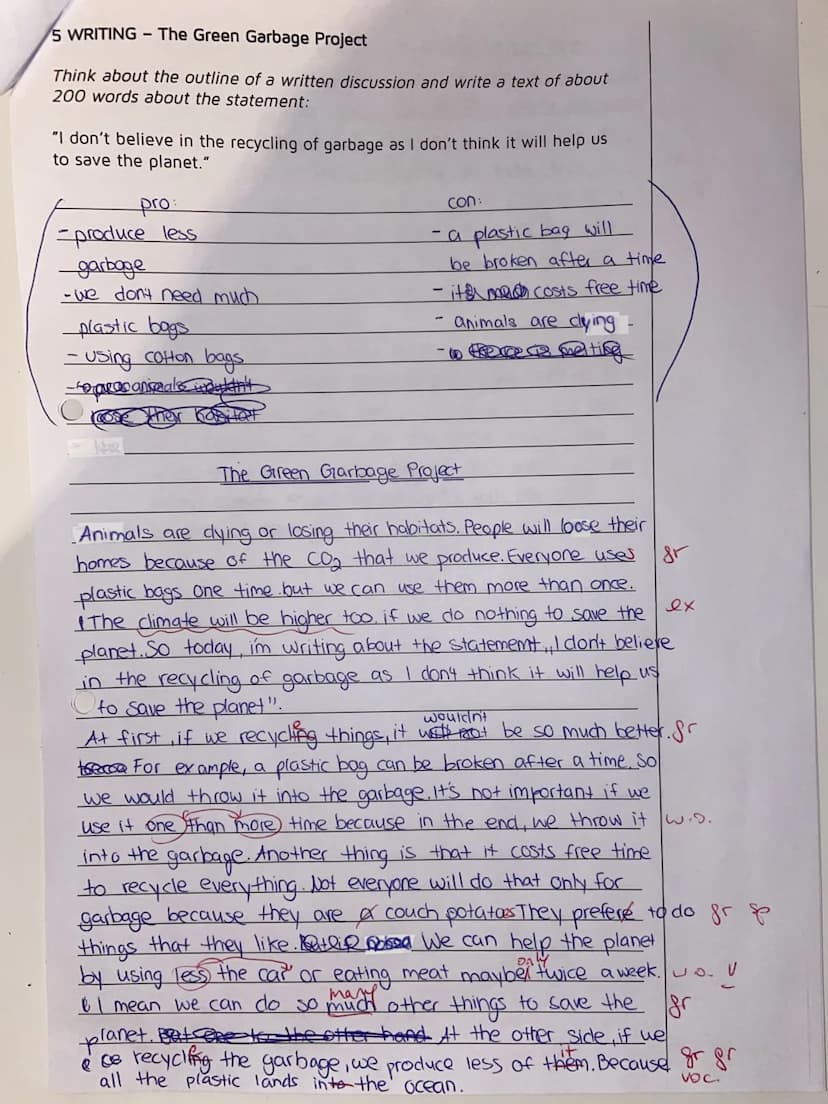 5 WRITING – The Green Garbage Project
Think about the outline of a written discussion and write a text of about
200 words about the statement:
"I don't believe in the recycling of garbage as I don't think it will help us
to save the planet."
pro:
- produce less
garbage
- we don't need much
plastic bags
- using cotton bags
con:
- a plastic bag will
be broken after a time
- it costs free time
- animals are dying
The Green Garbage Project
Animals are dying or losing their habitats. People will loose their
homes because of the CO2 that we produce. Everyone uses gr
plastic bags one time but we can use them more than once.
The climate will be higher too, if we do nothing to save the ex
planet. So today, i'm writing about the statement „I don't believe
in the recycling of garbage as I don't think it will help us
to save the planet".
At first, if we recycling things, it wouldn't be so much better. gr
For example, a plastic bag can be broken after a time. So
we would throw it into the garbage. It's not important if we
use it one than more time because in the end, we throw it w.o.
into the garbage. Another thing is that it costs free time
to recycle everything. Not everyone will do that only for
garbage because they are a couch potatoes They prefere to do gr sp
things that they like. We can help the planet
by using less the car or eating meat maybe only twice a week. w.o. V
I mean we can do so much many other things to save the gr
planet. At the other side, if we
recycling the garbage, we produce less of them it. Because gr gr
all the plastic lands into the ocean. voc.